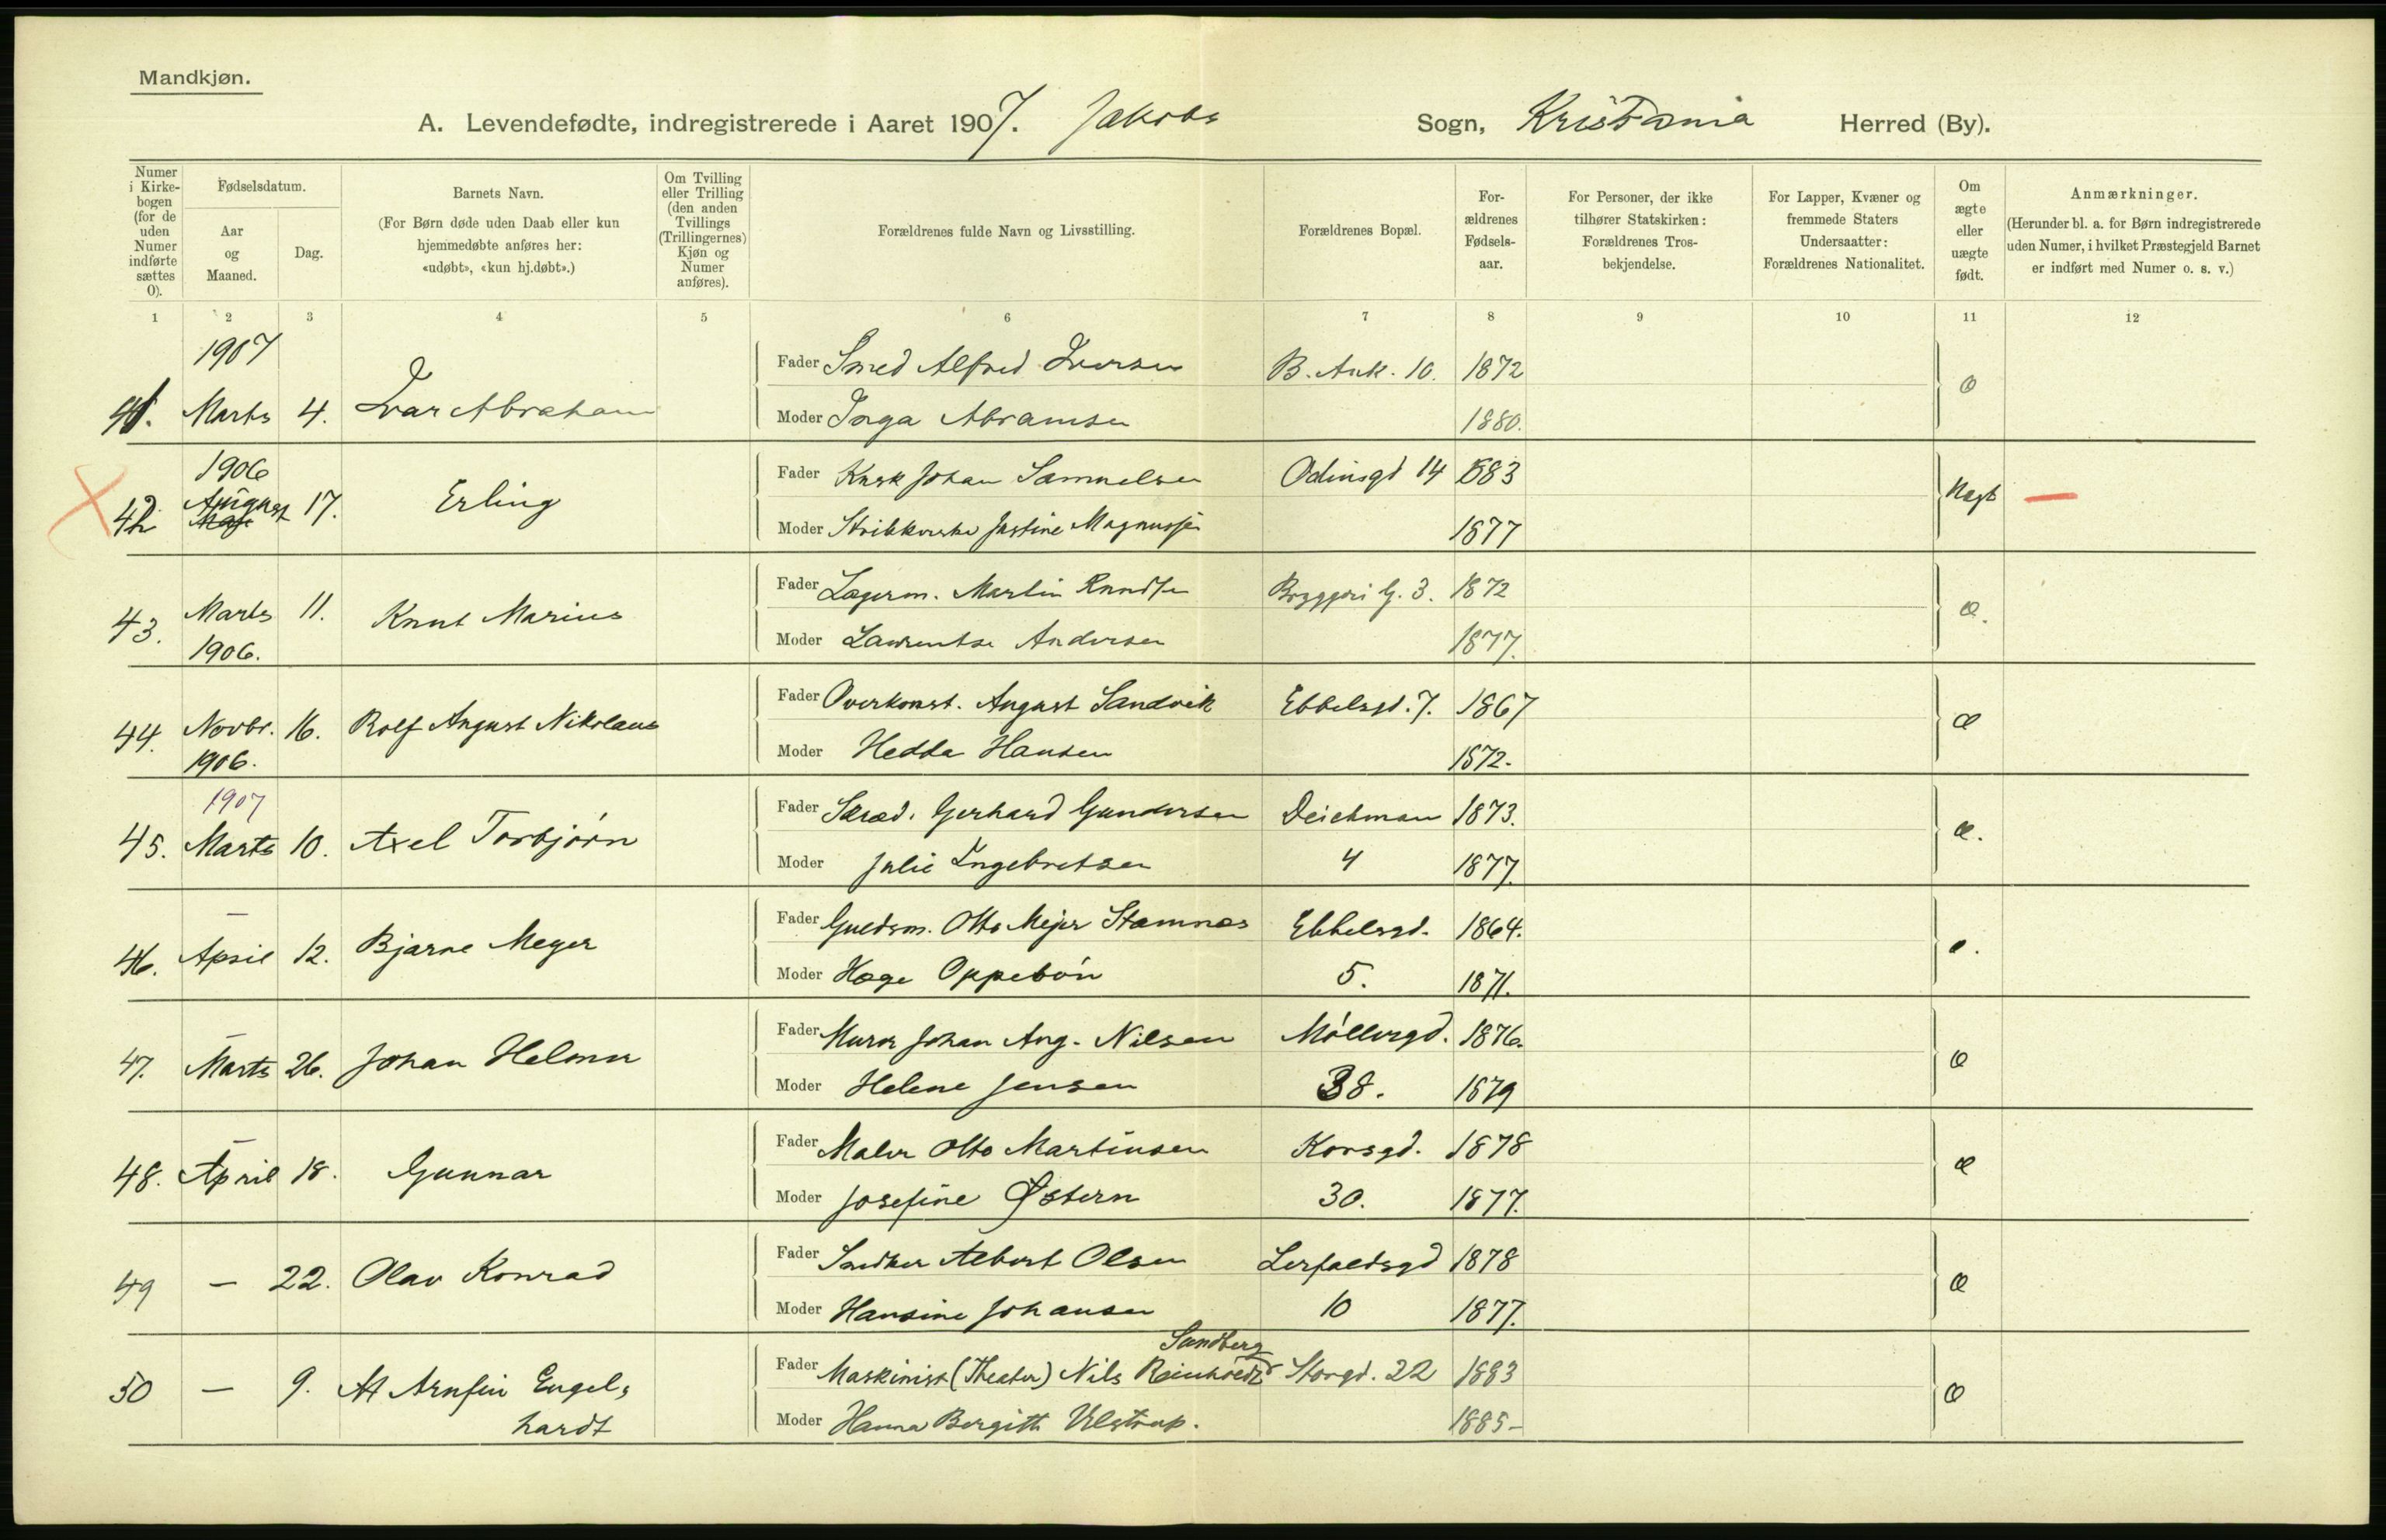 Mandkjøn.
A. Levendefødte, indregistrerede i Aaret 1907. Jakobs Sogn, Kristiania Herred (By).
Numer i Kirkebogen (for de uden Numer indførte sættes 0).
Fødselsdatum.
Aar og Maaned.
Dag.
Barnets Navn.
(For Børn døde uden Daab eller kun hjemmedøbte anføres her: «udøbt», «kun hj.døbt».)
Om Tvilling eller Trilling (den anden Tvillings (Trillingernes) Kjøn og Numer anføres).
Forældrenes fulde Navn og Livsstilling.
Forældrenes Bopæl.
Forældrenes Fødselsaar.
For Personer, der ikke tilhører Statskirken: Forældrenes Trosbekjendelse.
For Lapper, Kvæner og fremmede Staters Undersaatter: Forældrenes Nationalitet.
Om ægte eller uægte født.
Anmærkninger.
(Herunder bl. a. for Børn indregistrerede uden Numer, i hvilket Præstegjeld Barnet er indført med Numer o. s. v.)
1 2 3 4 5 6 7 8 9 10 11 12
1907
Fader Smed Alfred Iversen B. Ank. 10. 1872
41. Marts 4. Ivar Abraham Æ
Moder Inga Abramsen 1880.
1906
Fader Kusk Johan Samuelsen Odinsgd 14 1883
42 August 17. Erling Uægt —
Moder Justine Magnussen 1877
Fader Lagerm. Martin Knudsen Bryggeri G. 3. 1872
43. Marts 11. Knut Marius Æ.
1906.
Moder Laurentse Andersen 1877.
Fader Overkonst. August Sandvik Ebbelsgd. 7. 1867
44. Novbr. 16. Rolf August Nikolaus Æ
1906.
Moder Hedda Hansen 1872.
1907
Fader Gerhard Gundersen Deichman 1873.
45. Marts 10. Axel Torbjörn Æ.
Moder Julie Ingebretsen 4 1877.
—
Fader Guldsm. Otto Mejer Stamnæs Ebbelsgd. 1864.
46. April 12. Bjarne Meyer Æ.
Moder Hæge Oppebön 5. 1871.
—
Fader Murer Johan Aug. Nilsen Möllergd. 1876.
47. Marts 26. Johan Helmer Æ
Moder Helene Jensen 38. 1879
—
Fader Maler Otto Martinsen Korsgd. 1878
48. April 18. Gunnar Æ
Moder Josefine Østern 30. 1877.
Fader Snedker Albert Olsen Lerfaldsgd 1878
49 — 22. Olav Konrad Æ
Moder Hansine Johansen 10 1877.
Sundberg
Fader Maskinist (Theater) Nils Reinholdt Storgd. 22 1883
50 — 9. Alf Arnfin Engel-
hardt Æ
Moder Hanna Bergith Ulstrup. 1885-